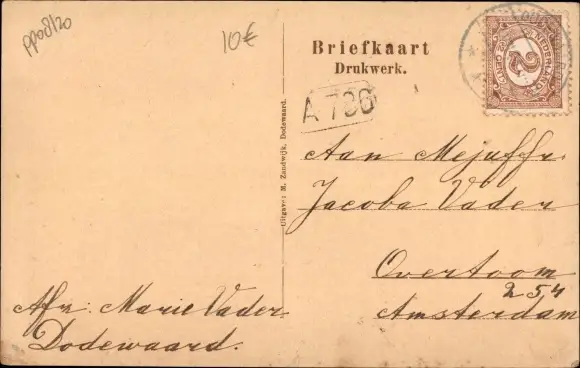 pp08/20
10€
Briefkaart
Drukwerk.
A 736
NEDERLAND
2
CENT
Uitgave: M. Zandwijk, Dodewaard.
Aan Mejuffr.
Jacoba Vader
Overtoom
254
Amsterdam
Afz: Marie Vader
Dodewaard.